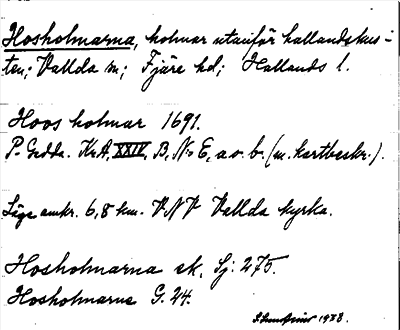 Hosholmarna, holmar utanför hallandskus-
ten; Vallda sn; Fjäre hd; Hallands l.
Hoos holmar 1691.
P. Gedda. Kr.A. XXIV, B, No E, a.o.b. (m. kartbeskr.).
Läge omkr. 6,8 km. VNV Vallda kyrka.
Hosholmarna sk. Sj: 275.
Hosholmarne G. 24.
1928.